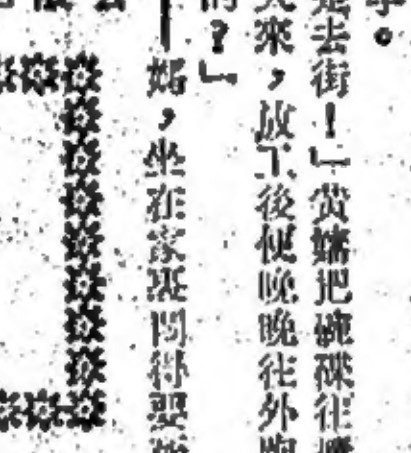 是去街！」黃嬸把碗碟往
來，放工後便晚晚往外跑
？」
嬸，坐在家裏悶得要